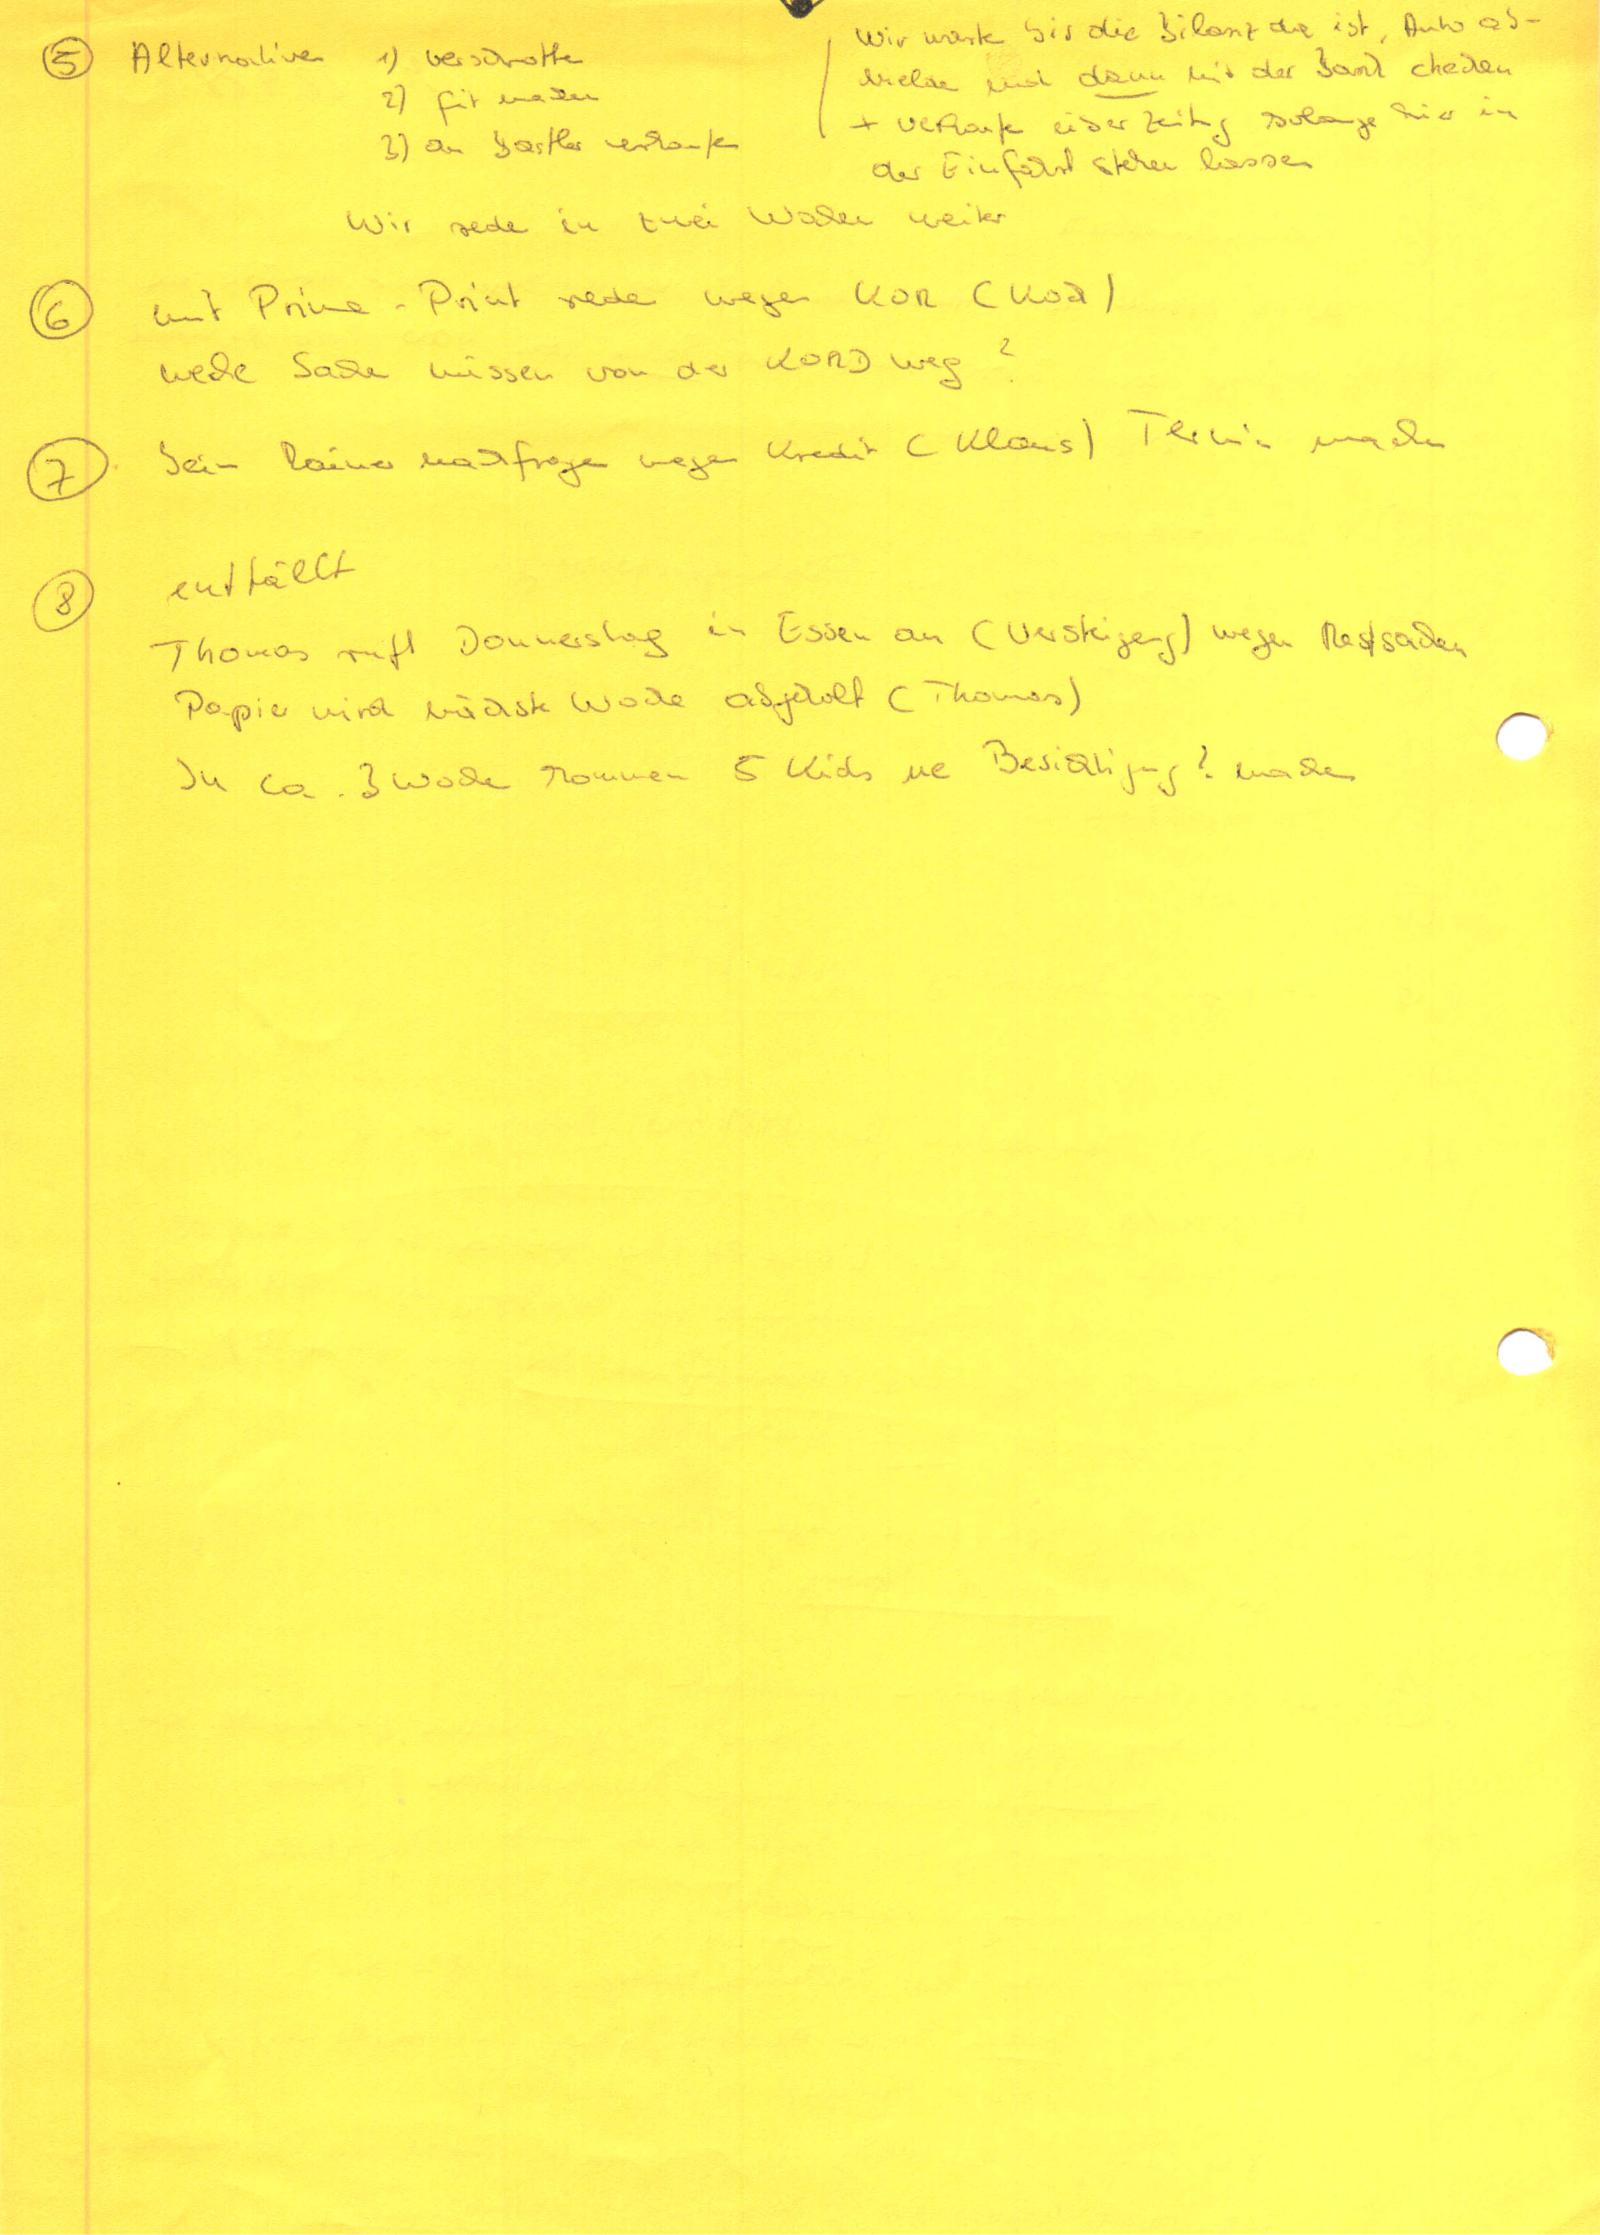 ⑤ Alternativen 1) verschrotten
2) fit machen
3) an Bastler verkaufen
Wir warten bis die Bilanz da ist, Auto ab-
melden und dann mit der Bank checken
+ verkaufen Zeitung solange hier in
der Einfahrt stehen lassen
Wir reden in zwei Wochen weiter
⑥ mit Prima-Print reden wegen KOR
welche Sachen müssen von der KORD weg?
⑦ Beim Rainer nachfragen wegen Kredit (Klaus) Termin machen
⑧ entfällt
Thomas ruft Donnerstag in Essen an (Versteigerung) wegen Restsachen
Papier wird nächste Woche abgeholt (Thomas)
In ca. 3 Wochen kommen 5 Kids ne Besichtigung? machen